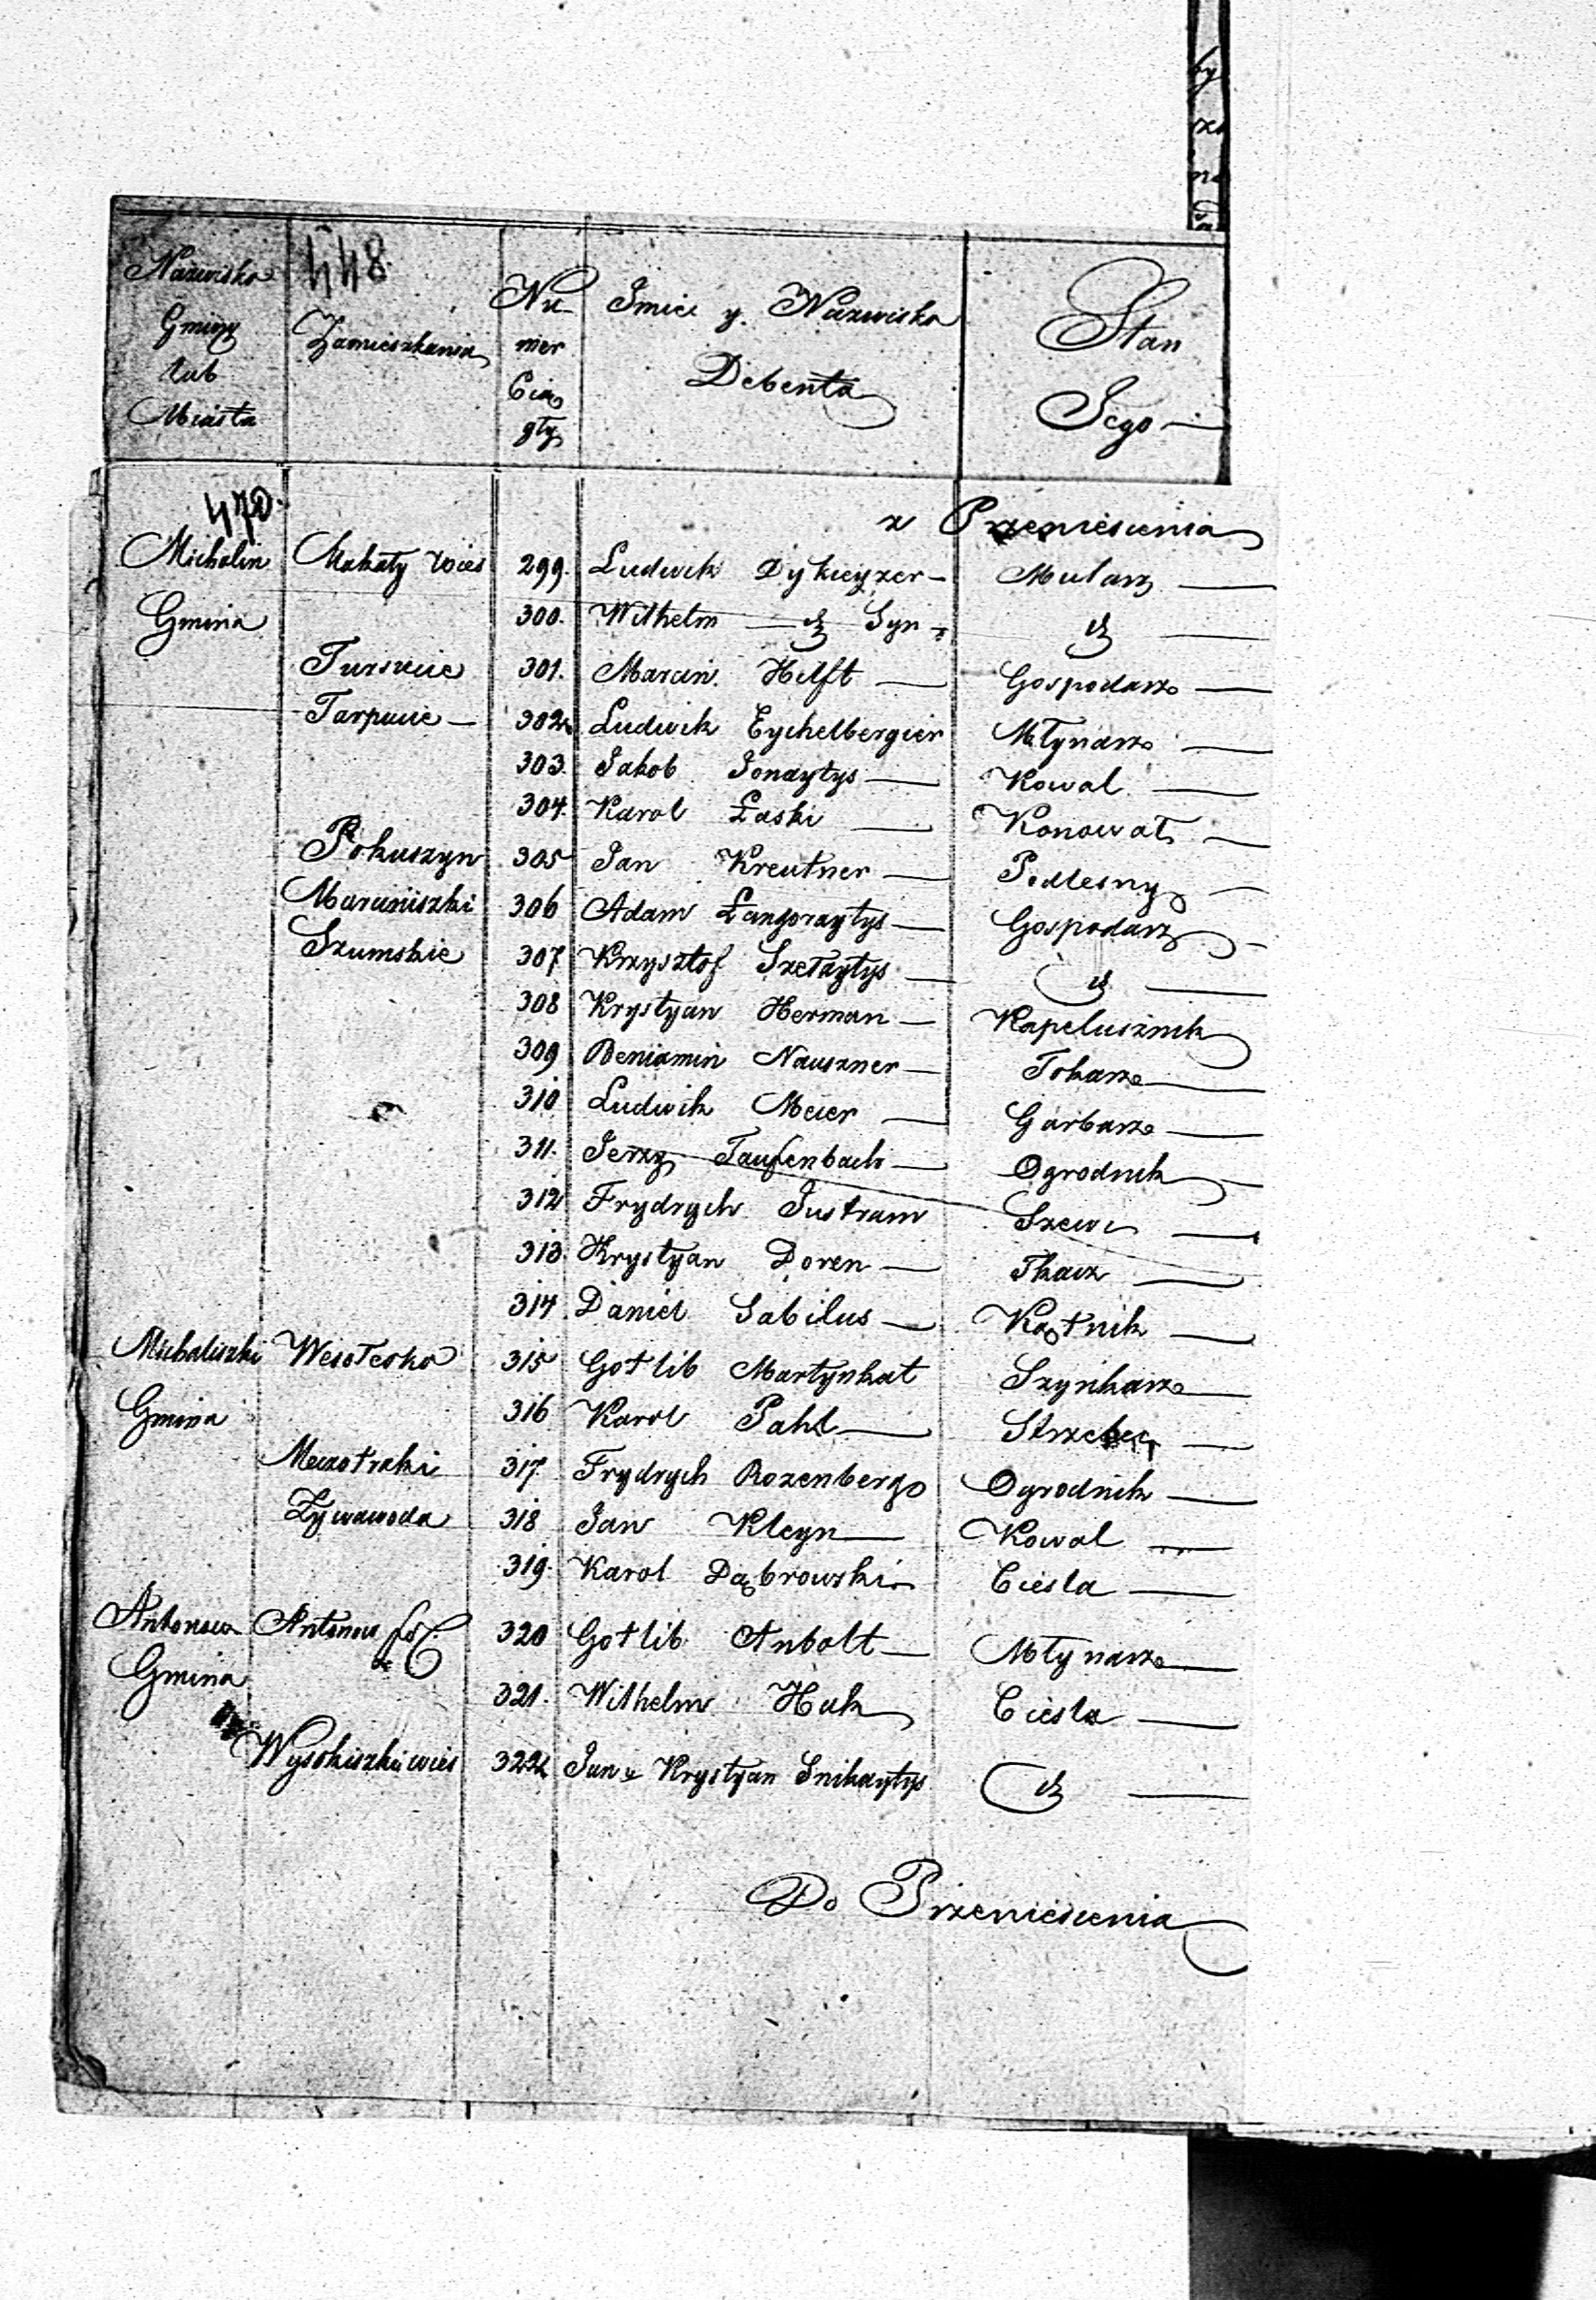 448.
Nazwisko Gminy lub Miasta
Zamieszkania
Numer Ciągły
Imie y Nazwisko Debenta
Stan Jego —
470.
z Przeniesienia
Michalin Mokały Wieś 299. Ludwik Dykieyzer — Mularz —
Gmina 300. Wilhelm — Syn
301. Marcin Helft — Gospodarz —
Tarpucie — 302 Ludwik Eychelbergier Młynarz —
303. Jakob Jonaytys — Kowal —
304. Karol Łaski — Konował —
Pokuszyn 305 Jan Kreutner — Podleśny —
Marciniszki 306 Adam Łangoraytys — Gospodarz —
Szumskie 307 Krzysztof Szełaytys —
308 Krystyan Herman — Kapelusznik
309 Beniamin Nauszner — Tokarz —
310 Ludwik Meier — Garbarz —
311. Jerzy Taufenbach — Ogrodnik —
312 Frydrych Justram Szewc —
313. Krystyan Doren — Tkacz —
314. Daniel Sabilus — Kątnik —
Michaliszki Wesołesko 315 Gotlib Martynkat Szynkarz —
Gmina 316 Karol Pahl — Strzelec —
317. Frydrych Rozenberg Ogrodnik —
Zywawoda 318 Jan Kleyn — Kowal —
319. Karol Dąbrowski — Ciesla —
Antonowo Antonow 320 Gotlib Anbolt — Młynarz —
Gmina 321. Wilhelm Hak Ciesla —
Wysokiszki wieś 322 Jan Krystyan Snikaytys
Do Przeniesienia